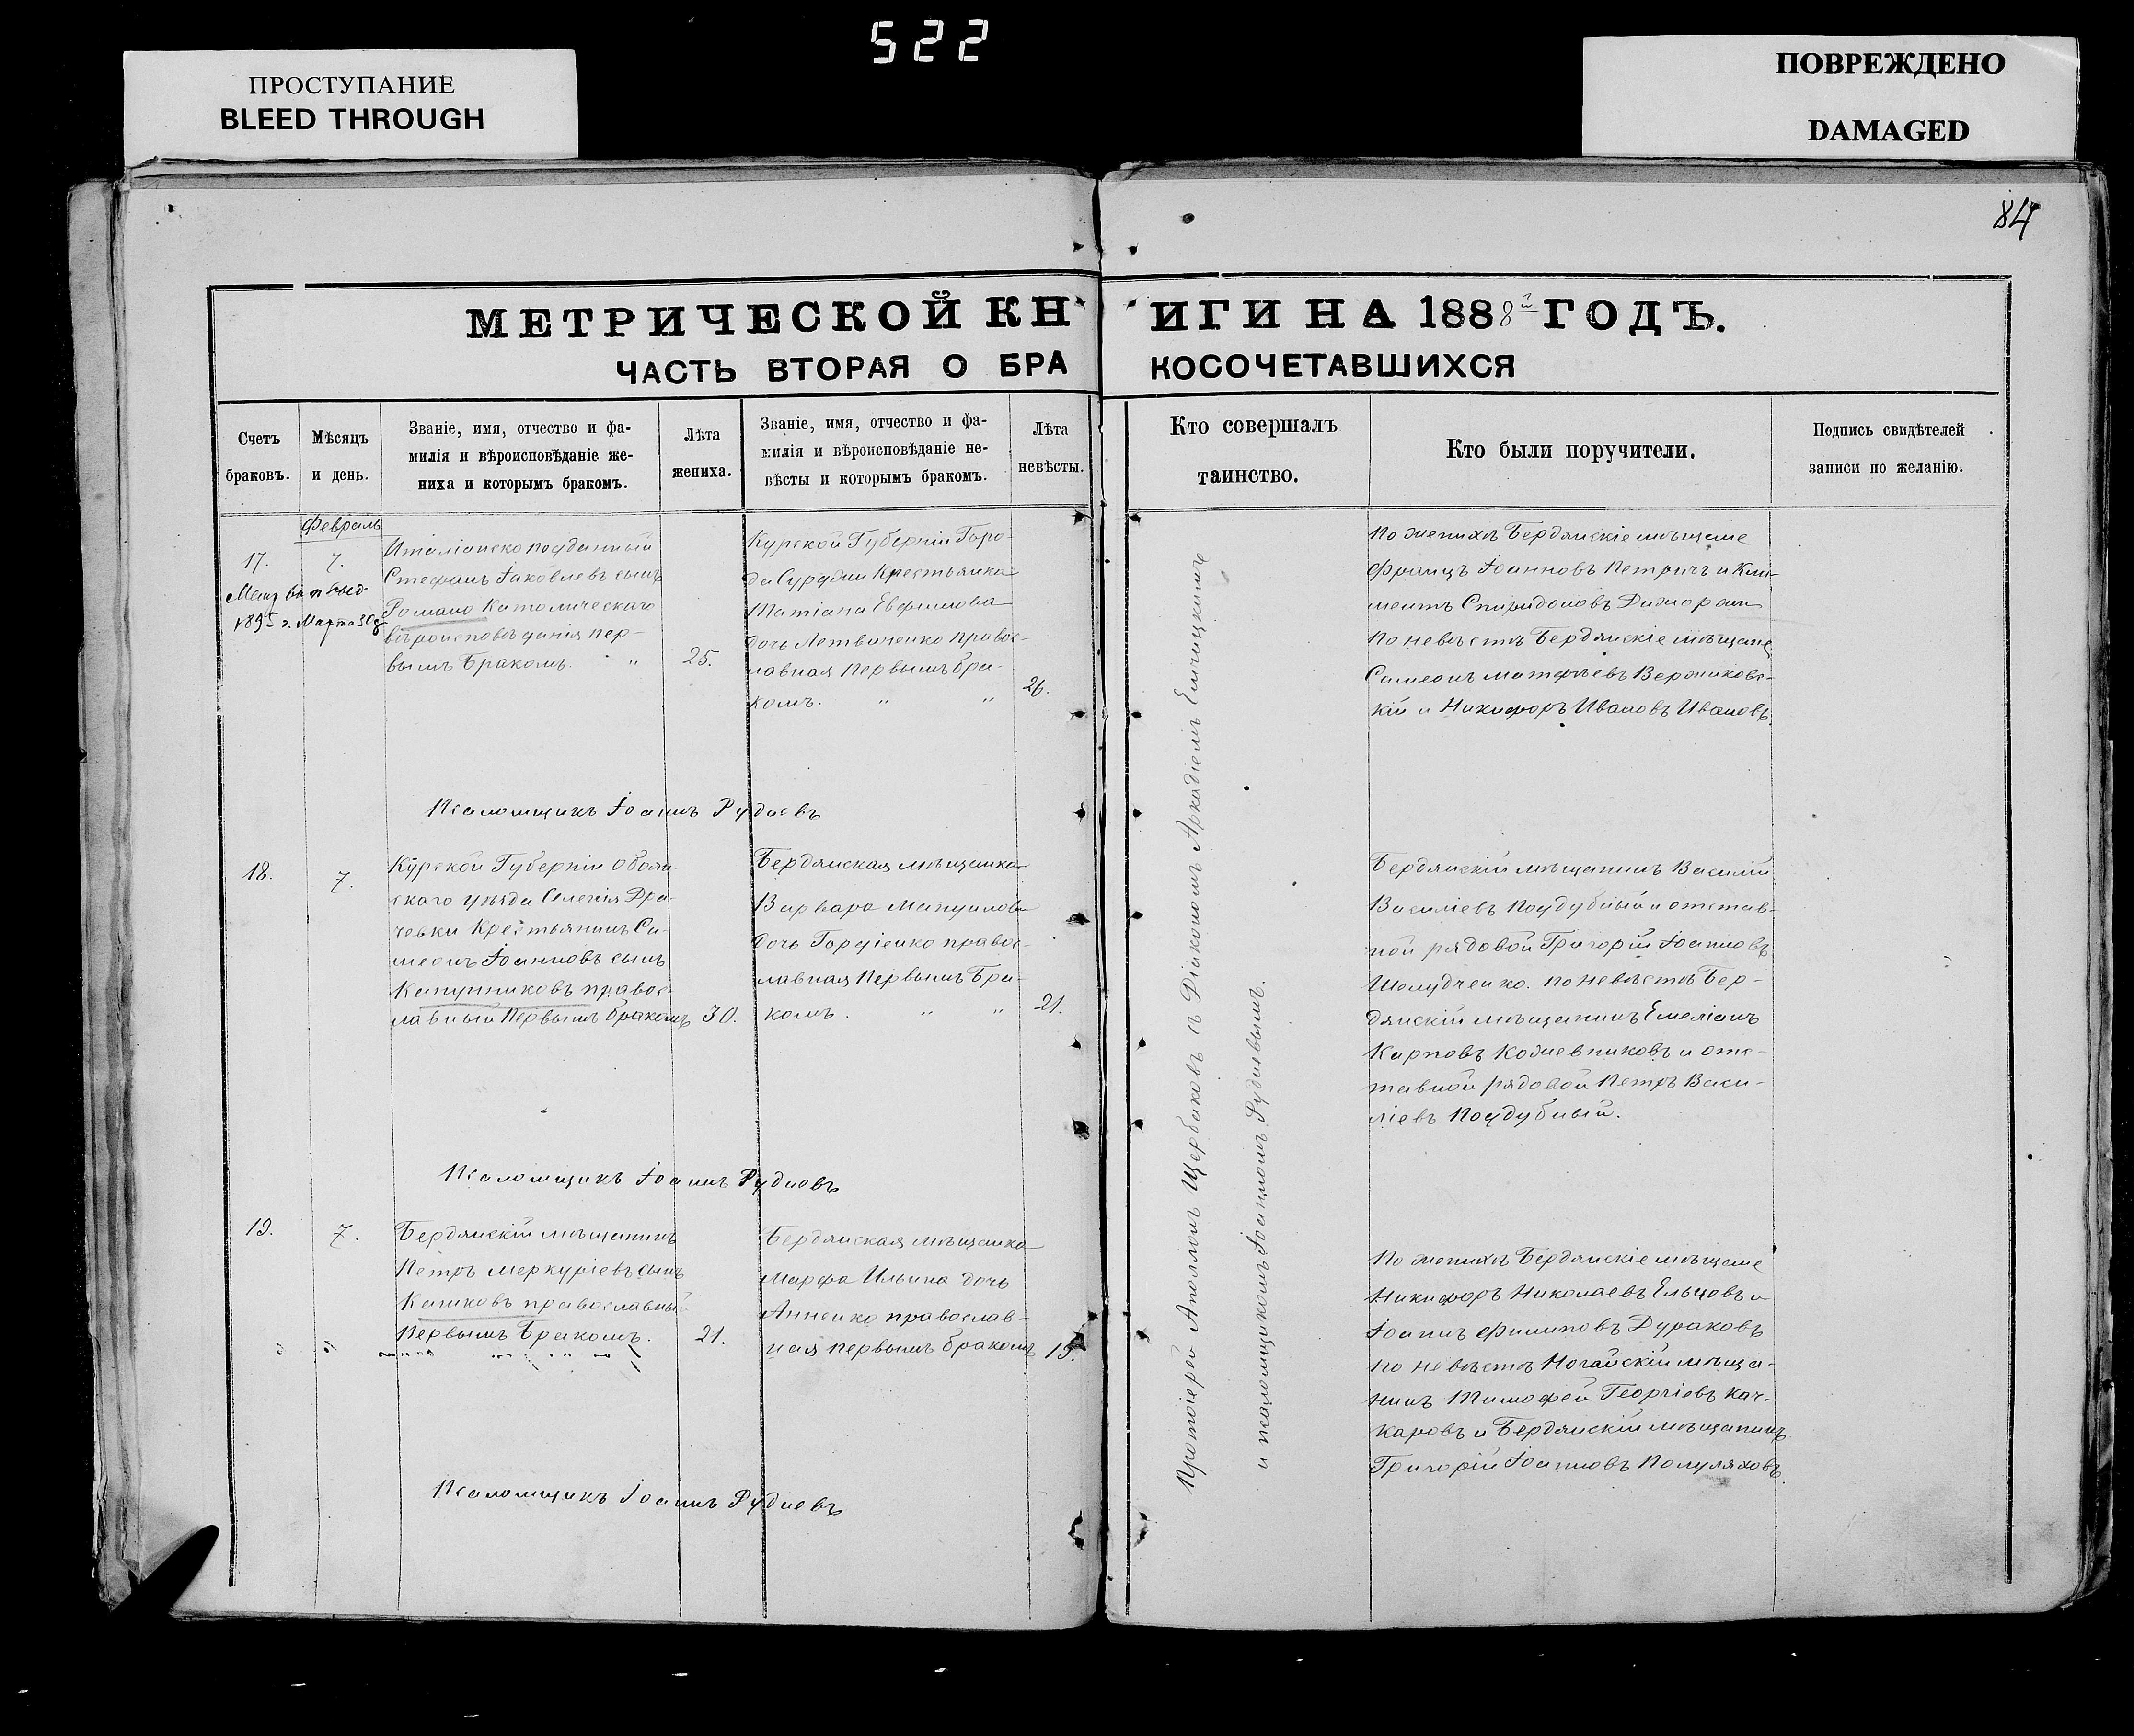 522
ПРОСТУПАНИЕ
BLEED THROUGH
ПОВРЕЖДЕНО
DAMAGED
84
МЕТРИЧЕСКОЙ КНИГИ НА 1888й ГОДЪ.
ЧАСТЬ ВТОРАЯ О БРАКОСОЧЕТАВШИХСЯ
Счетъ
браковъ.
Мѣсяцъ
и день.
Званіе, имя, отчество и фа-
милія и вѣроисповѣданіе же-
ниха и которымъ бракомъ.
Лѣта
жениха.
Званіе, имя, отчество и фа-
милія и вѣроисповѣданіе не-
вѣсты и которымъ бракомъ.
Лѣта
невѣсты.
Кто совершалъ
таинство.
Кто были поручители.
Подпись свидѣтелей
записи по желанію.
Февраль
17.
7.
1895 г. Марта
Италіанско подданный
Стефанъ Іаковлевъ сынъ
Романо Католическаго
вѣроисповѣданія пер-
вымъ бракомъ. "
25.
Курской Губерніи Горо-
да Суджи Крестьянка
Татіана Евфимова
дочь Летвиненко правос-
лавная Первымъ бра-
комъ. " "
26.
По женихѣ Бердянскіе мѣщане
Францъ Іоанновъ Петричъ и Кли-
ментъ Спиридоновъ
По невѣстѣ Бердянскіе мѣщане
Симеонъ Матфѣевъ Вержиковс-
кій и Никифоръ Ивановъ Ивановъ.
Псаломщикъ Іоаннъ Рудневъ
18.
7.
Курской Губерніи Обоян-
скаго уѣзда Селенія Дра-
чевки Крестьянинъ Си-
меонъ Іоанновъ сынъ
Капунниковъ правос-
лавный Первымъ бракомъ
30.
Бердянская мѣщанка
Варвара Мануилова
дочь Гордіенко правос-
лавная Первымъ Бра-
комъ. " "
21.
Бердянскій мѣщанинъ Василій
Василіевъ Поддубный и отстав-
ной рядовой Григорій Іоанновъ
Шелудченко. По невѣстѣ Бер-
дянскій мѣщанинъ Емеліанъ
Карповъ Кожевниковъ и отс-
тавной рядовой Петръ Васи-
ліевъ Поддубный.
Псаломщикъ Іоаннъ Рудневъ
19.
7.
Бердянскій мѣщанинъ
Петръ Меркуріевъ сынъ
Кашковъ православный
Первымъ Бракомъ.
21.
Бердянская мѣщанка
Марфа Ильина дочь
Анненко православ-
ная первымъ бракомъ
19.
По женихѣ Бердянскіе мѣщане
Никифоръ Николаевъ Ельцовъ и
Іоаннъ Филиповъ Дураковъ
по невѣстѣ Ногайскій мѣща-
нинъ Тимофей Георгіевъ Кач-
каровъ и Бердянскій мѣщанинъ
Григорій Іоанновъ Полуляховъ.
Псаломщикъ Іоаннъ Рудневъ
Протоіерей Аполлонъ Щербаковъ съ Діакономъ Аркадіемъ
и псаломщикомъ Іоанномъ Рудневымъ.